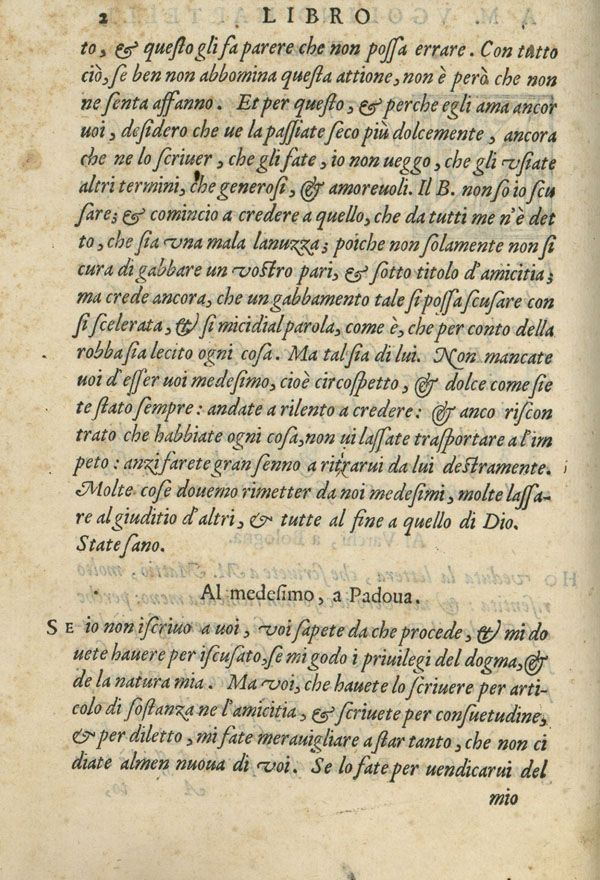 2 LIBRO
to, & questo gli fa parere che non possa errare. Con tutto
ciò, se ben non abbomina questa attione, non è però che non
ne senta affanno. Et per questo, & perche egli ama ancor
uoi, desidero che ue la passiate seco più dolcemente, ancora
che ne lo scriuer, che gli fate, io non ueggo, che gli vsiate
altri termini, che generosi, & amoreuoli. Il B. non so io scu
sare; & comincio a credere a quello, che da tutti me n'è det
to, che sia vna mala lanuzza; poiche non solamente non si
cura di gabbare un vostro pari, & sotto titolo d'amicitia;
ma crede ancora, che un gabbamento tale si possa scusare con
si scelerata, & si micidial parola, come è, che per conto della
robba sia lecito ogni cosa. Ma tal sia di lui. Non mancate
uoi d'esser uoi medesimo, cioè circospetto, & dolce come sie
te stato sempre: andate a rilento a credere: & anco riscon
trato che habbiate ogni cosa, non ui lassate trasportare a l'im
peto: anzi farete gran senno a ritrarui da lui destramente.
Molte cose douemo rimetter da noi medesimi, molte lassa-
re al giuditio d'altri, & tutte al fine a quello di Dio.
State sano.
Al medesimo, a Padoua.
SE io non iscriuo a uoi, voi sapete da che procede, & mi do
uete hauere per iscusato, se mi godo i priuilegi del dogma, &
de la natura mia. Ma voi, che hauete lo scriuere per arti-
colo di sostanza ne l'amicitia, & scriuete per consuetudine,
& per diletto, mi fate merauigliare a star tanto, che non ci
diate almen nuoua di voi. Se lo fate per uendicarui del
mio